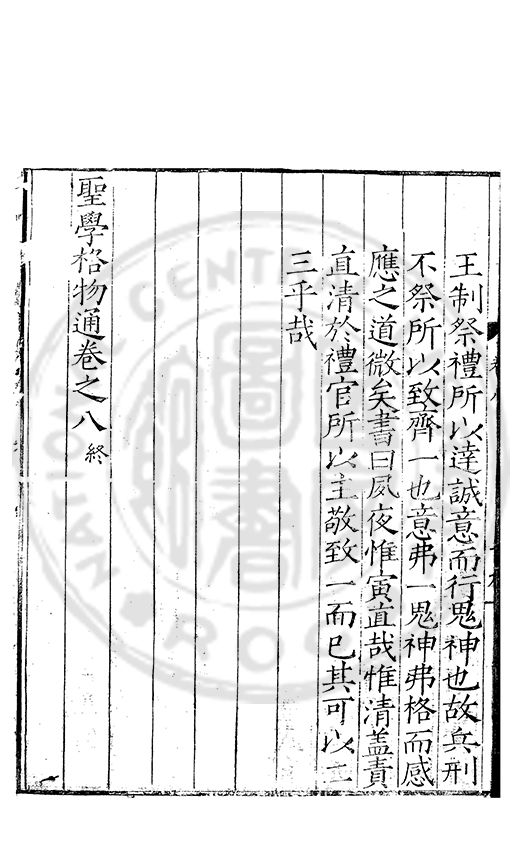 王制祭禮所以達誠意而行鬼神也故兵刑
不祭所以致齊一也意弗一鬼神弗格而感
應之道微矣書曰夙夜惟寅直哉惟清蓋責
直清於禮官所以主敬致一而已其可以二
三乎哉
聖學格物通卷之八終